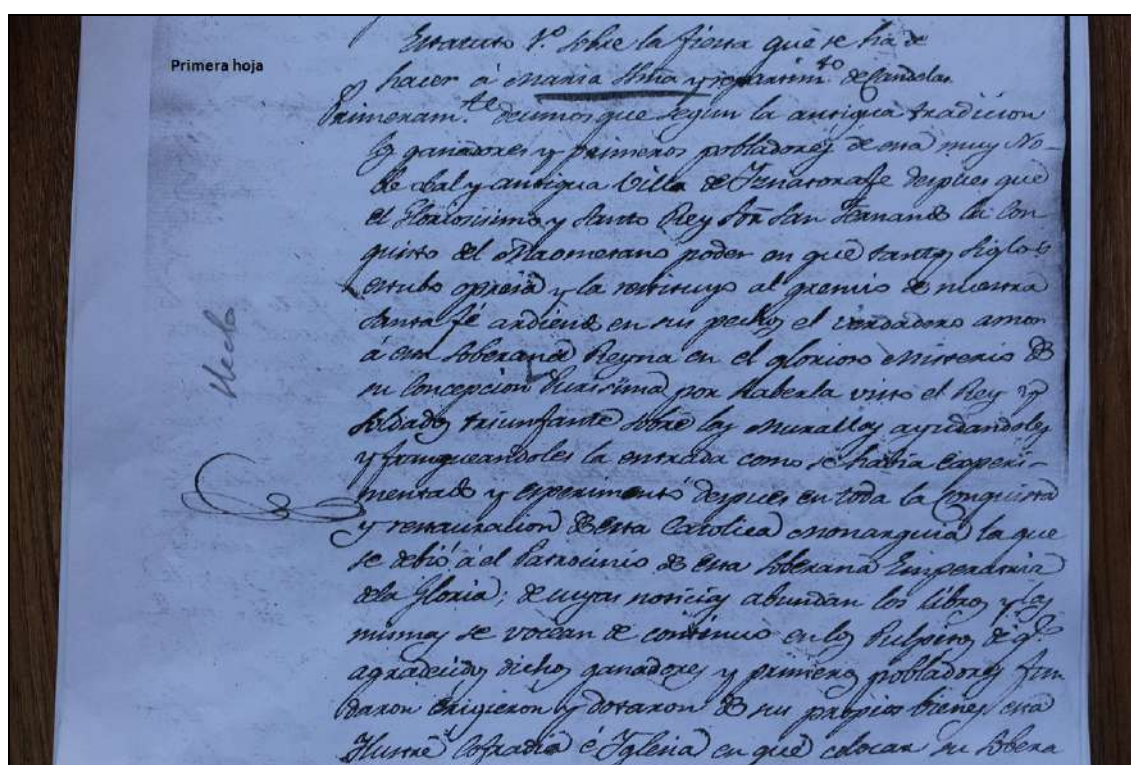 Primera hoja
Estatuto 1º. sobre la fiesta que se ha de
hacer á Maria Ssma y repartimto. de Candelas.
Primeramte. decimos que segun la antigua tradicion
los ganadores y primeros pobladores de esta muy No-
ble Leal y antigua Villa de Iznatorafe despues que
el Gloriosisimo y Santo Rey Dn. San Fernando la con
quisto del Maometano poder en que tantos siglos
estubo opresa y la restituyo al gremio de nuestra
Santa fé ardiendo en sus pechos el verdadero amor
á esta Soberana Reyna en el glorioso Misterio de
su Concepcion Purisima por haberla visto el Rey y
Soldados triunfante sobre las Murallas ayudandoles
y franqueandoles la entrada como se habia experi-
mentado y experimentó despues en toda la Conquista
y restauracion de esta Catolica Monarquia la que
se debió á el Patrocinio de esta Soberana Emperatriz
de la Gloria; de cuyas noticias abundan los libros y las
mismas se vocean de continuo en los Pulpitos de qe.
agradecidos dichos ganadores y primeros pobladores fun
daron erigieron y dotaron de sus propios bienes esta
Ilustre Cofradia é Iglesia en que colocar su Sobera